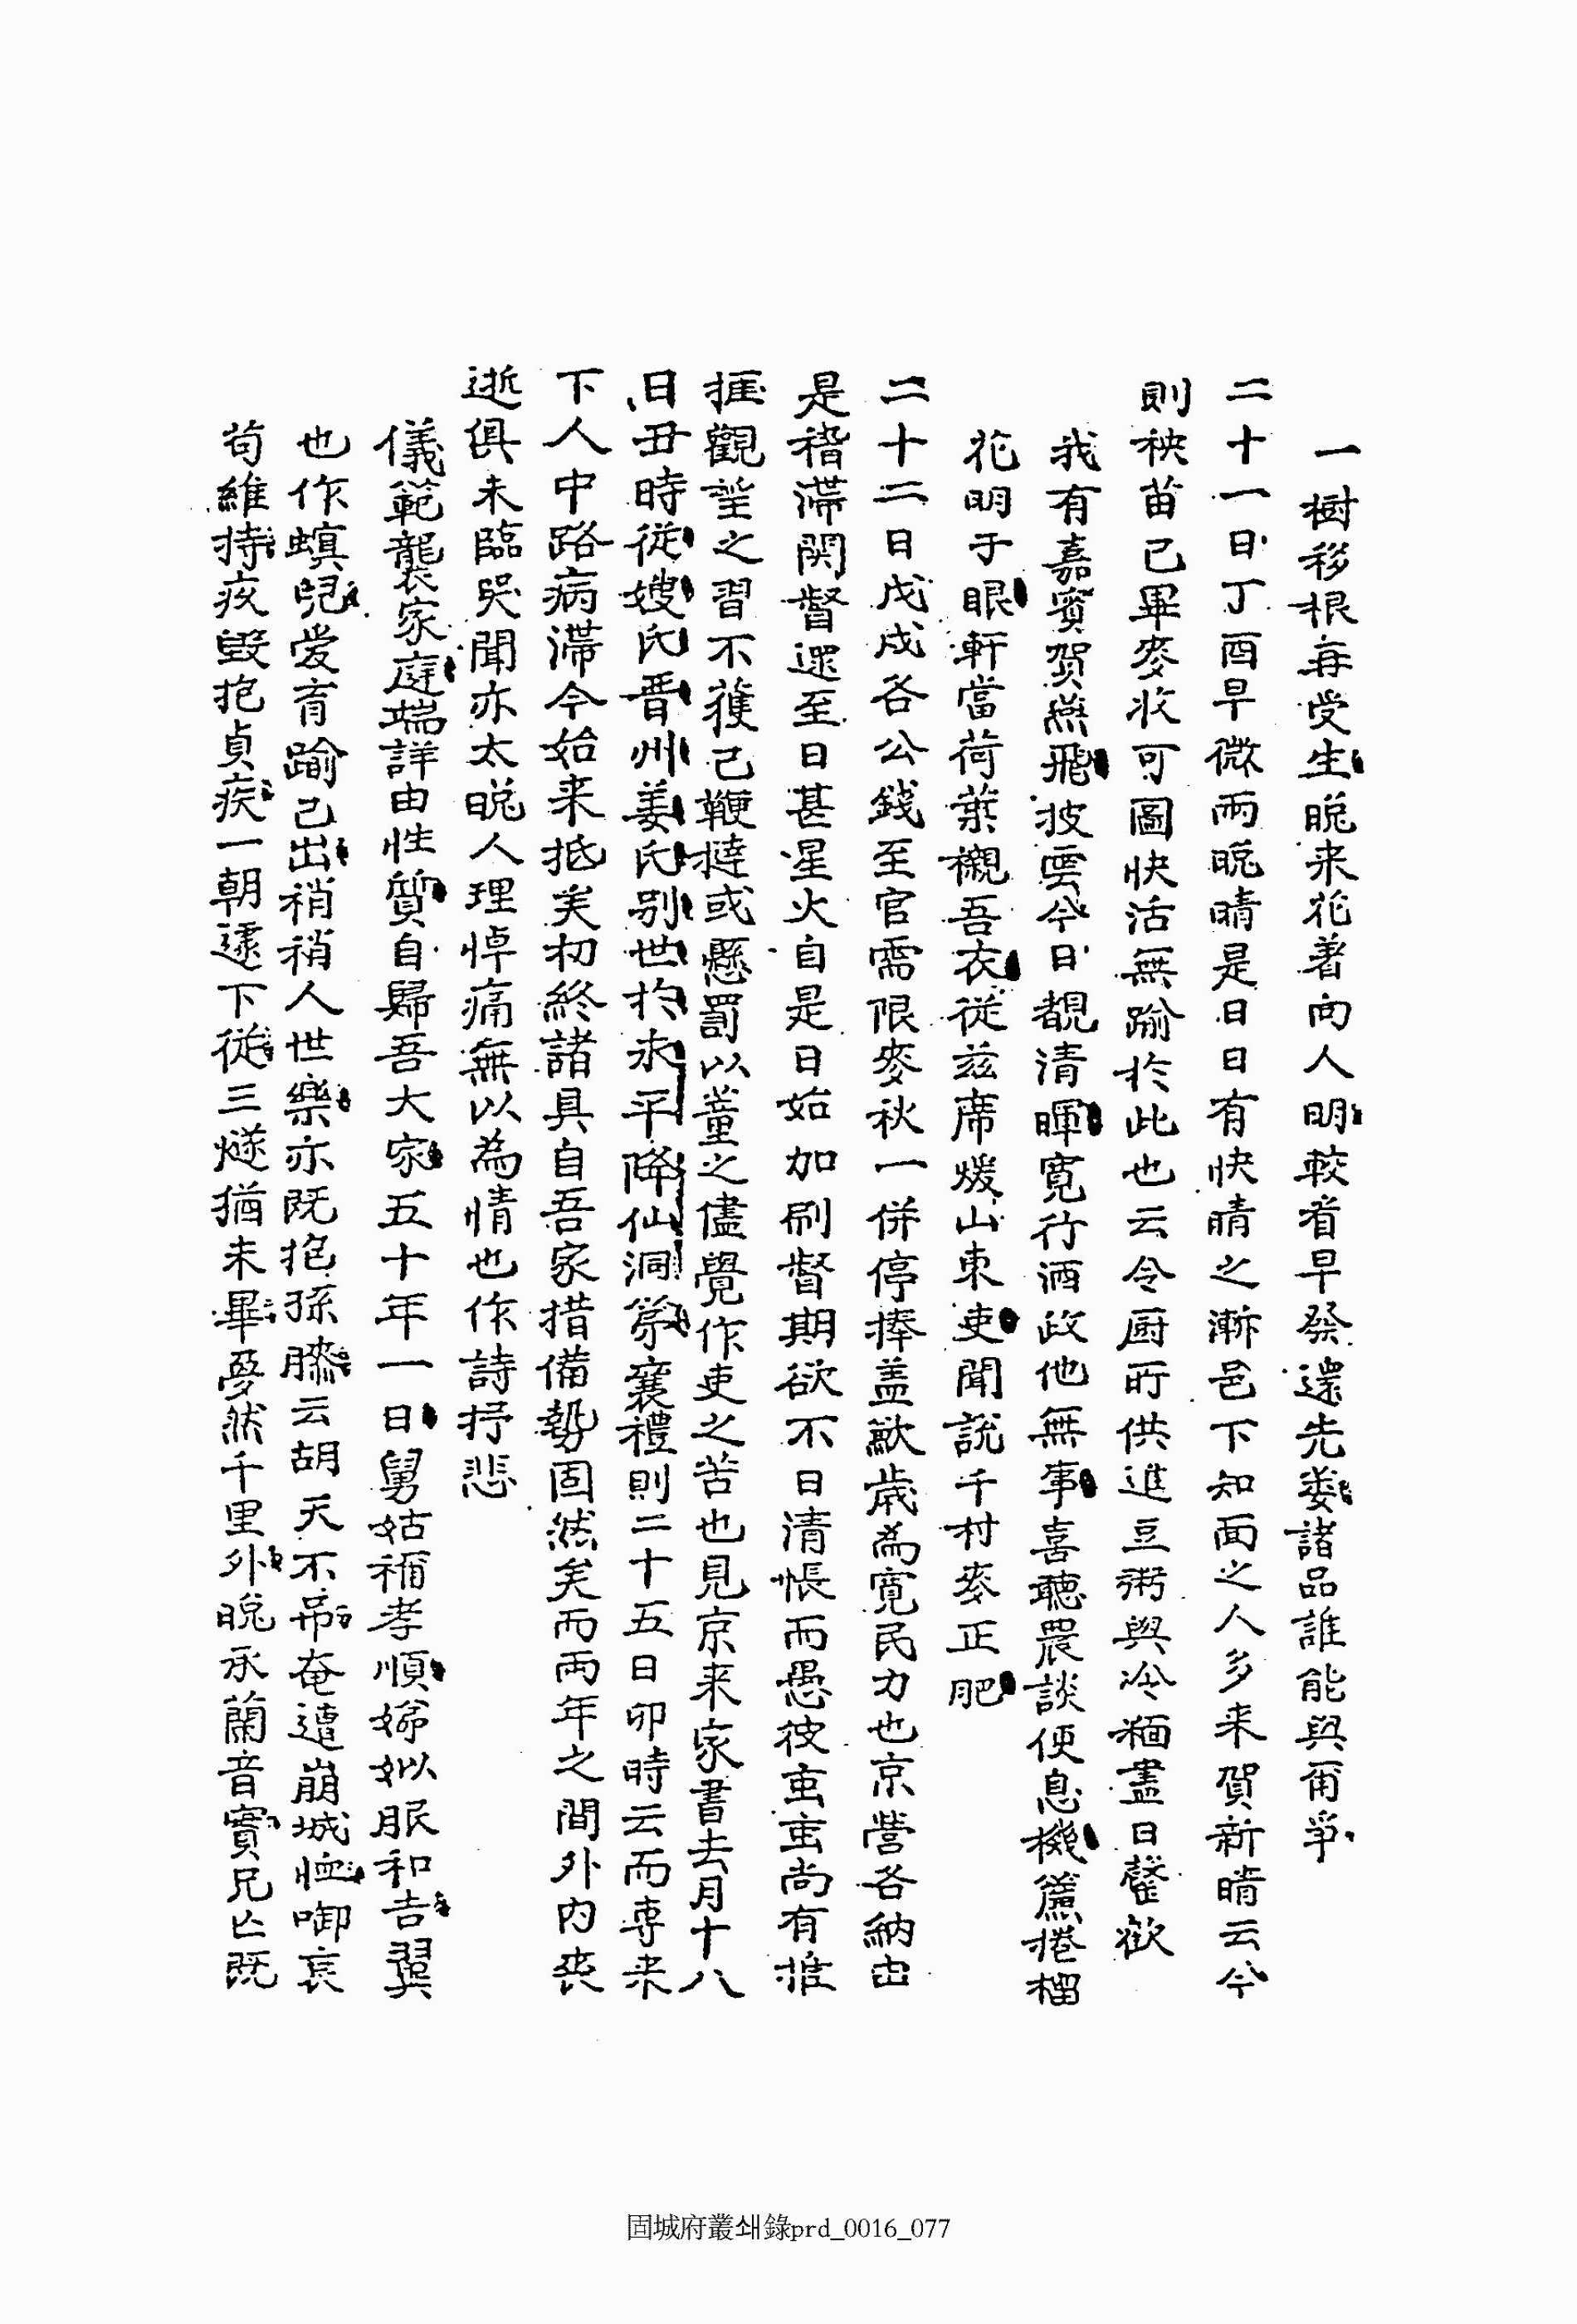 一樹移根毎受生晩来花着向人明較看早發還先萎諸品誰能與甭爭
二十一日丁酉早微雨晩晴是日日有快晴之漸邑下知面之人多来賀新晴云今
則秧苗已畢麥收可圖快活無踰於此也云令厨所供進豆粥與冷糆盡日罄歡
我有嘉賓賀燕飛披雲今日覩清暉寛行酒政他無事喜聽農談便息機簾捲榴
花明于眼軒當荷葉襯吾衣從兹席煖山東吏聞說千村麥正肥
二十二日戊戌各公錢至官需限麥秋一併停捧盖歉歲為寛民力也京營各納由
是稽滞関督還至日甚星火自是日始加刷督期欲不日清帳而愚彼蚩蚩尚有推
捱觀望之習不獲已鞭撻或懸罰以董之儘覺作吏之苦也見京来家書去月十八
日丑時從嫂氏晋州姜氏别世於永平降仙洞第襄禮則二十五日卯時云而専来
下人中路病滞今始来抵矣初終諸具自吾家措備勢固然矣而兩年之間外内喪
逝俱未臨哭聞亦太晩人理悼痛無以為情也作詩抒悲
儀範襲家庭端詳由性質自歸吾大家五十年一日舅姑稱孝順娣姒服和吉翼
也作螟䘆愛育踰己出稍稍人世樂亦既抱孫膝云胡天不吊奄遭崩城恤啣哀
苟維持疚毁抱貞疾一朝遽下從三燧猶未畢夢然千里外晩承蘭音實兄亡既
固城府叢쇄錄prd_0016_077